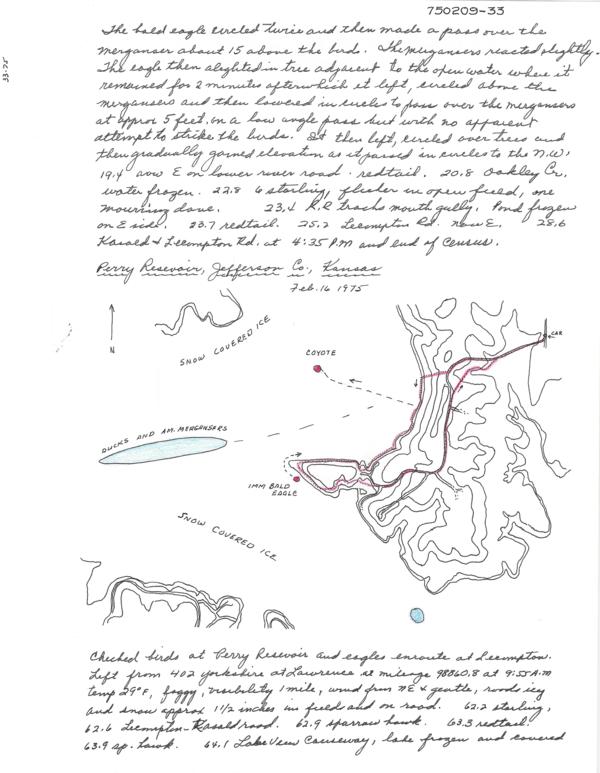 750209-33
33-75
The bald eagle circled twice and then made a pass over the
merganser about 15 above the birds. The mergansers reacted slightly.
The eagle then alighted in tree adjacent to the open water where it
remained for 2 minutes after which it left, circled above the
mergansers and then lowered in circles to pass over the mergansers
at approx 5 feet in a low angle pass but with no apparent
attempt to strike the birds. It then left, circled over trees and
then gradually gained elevation as it passed in circles to the N.W.
19.4 now E on lower river road - redtail. 20.8 Oakley Cr.
water frozen. 22.8 6 starling, flicker in open field, one
mourning dove. 23.4 R.R tracks mouth gully. Pond frozen
on E side. 23.7 redtail. 25.2 Lecompton Rd. now E. 28.6
Kasold & Lecompton Rd. at 4:35 P.M and end of census.
Perry Resevoir, Jefferson Co., Kansas
Feb. 16 1975
N
SNOW COVERED ICE
COYOTE
CAR
DUCKS AND AM. MERGANSERS
IMM BALD
EAGLE
SNOW COVERED ICE
Checked birds at Perry Resevoir and eagles enroute at Lecompton.
Left from 402 Yorkshire at Lawrence at mileage 98060.8 at 9:55 A.M
temp 29°F, foggy, visibility 1 mile, wind from NE & gentle, roads icy
and snow approx 1 1/2 inches in field and on road. 62.2 starling,
62.6 Lecompton-Kasold road. 62.9 sparrow hawk. 63.3 redtail.
63.9 sp. hawk. 64.1 Lake View Causeway, lake frozen and covered